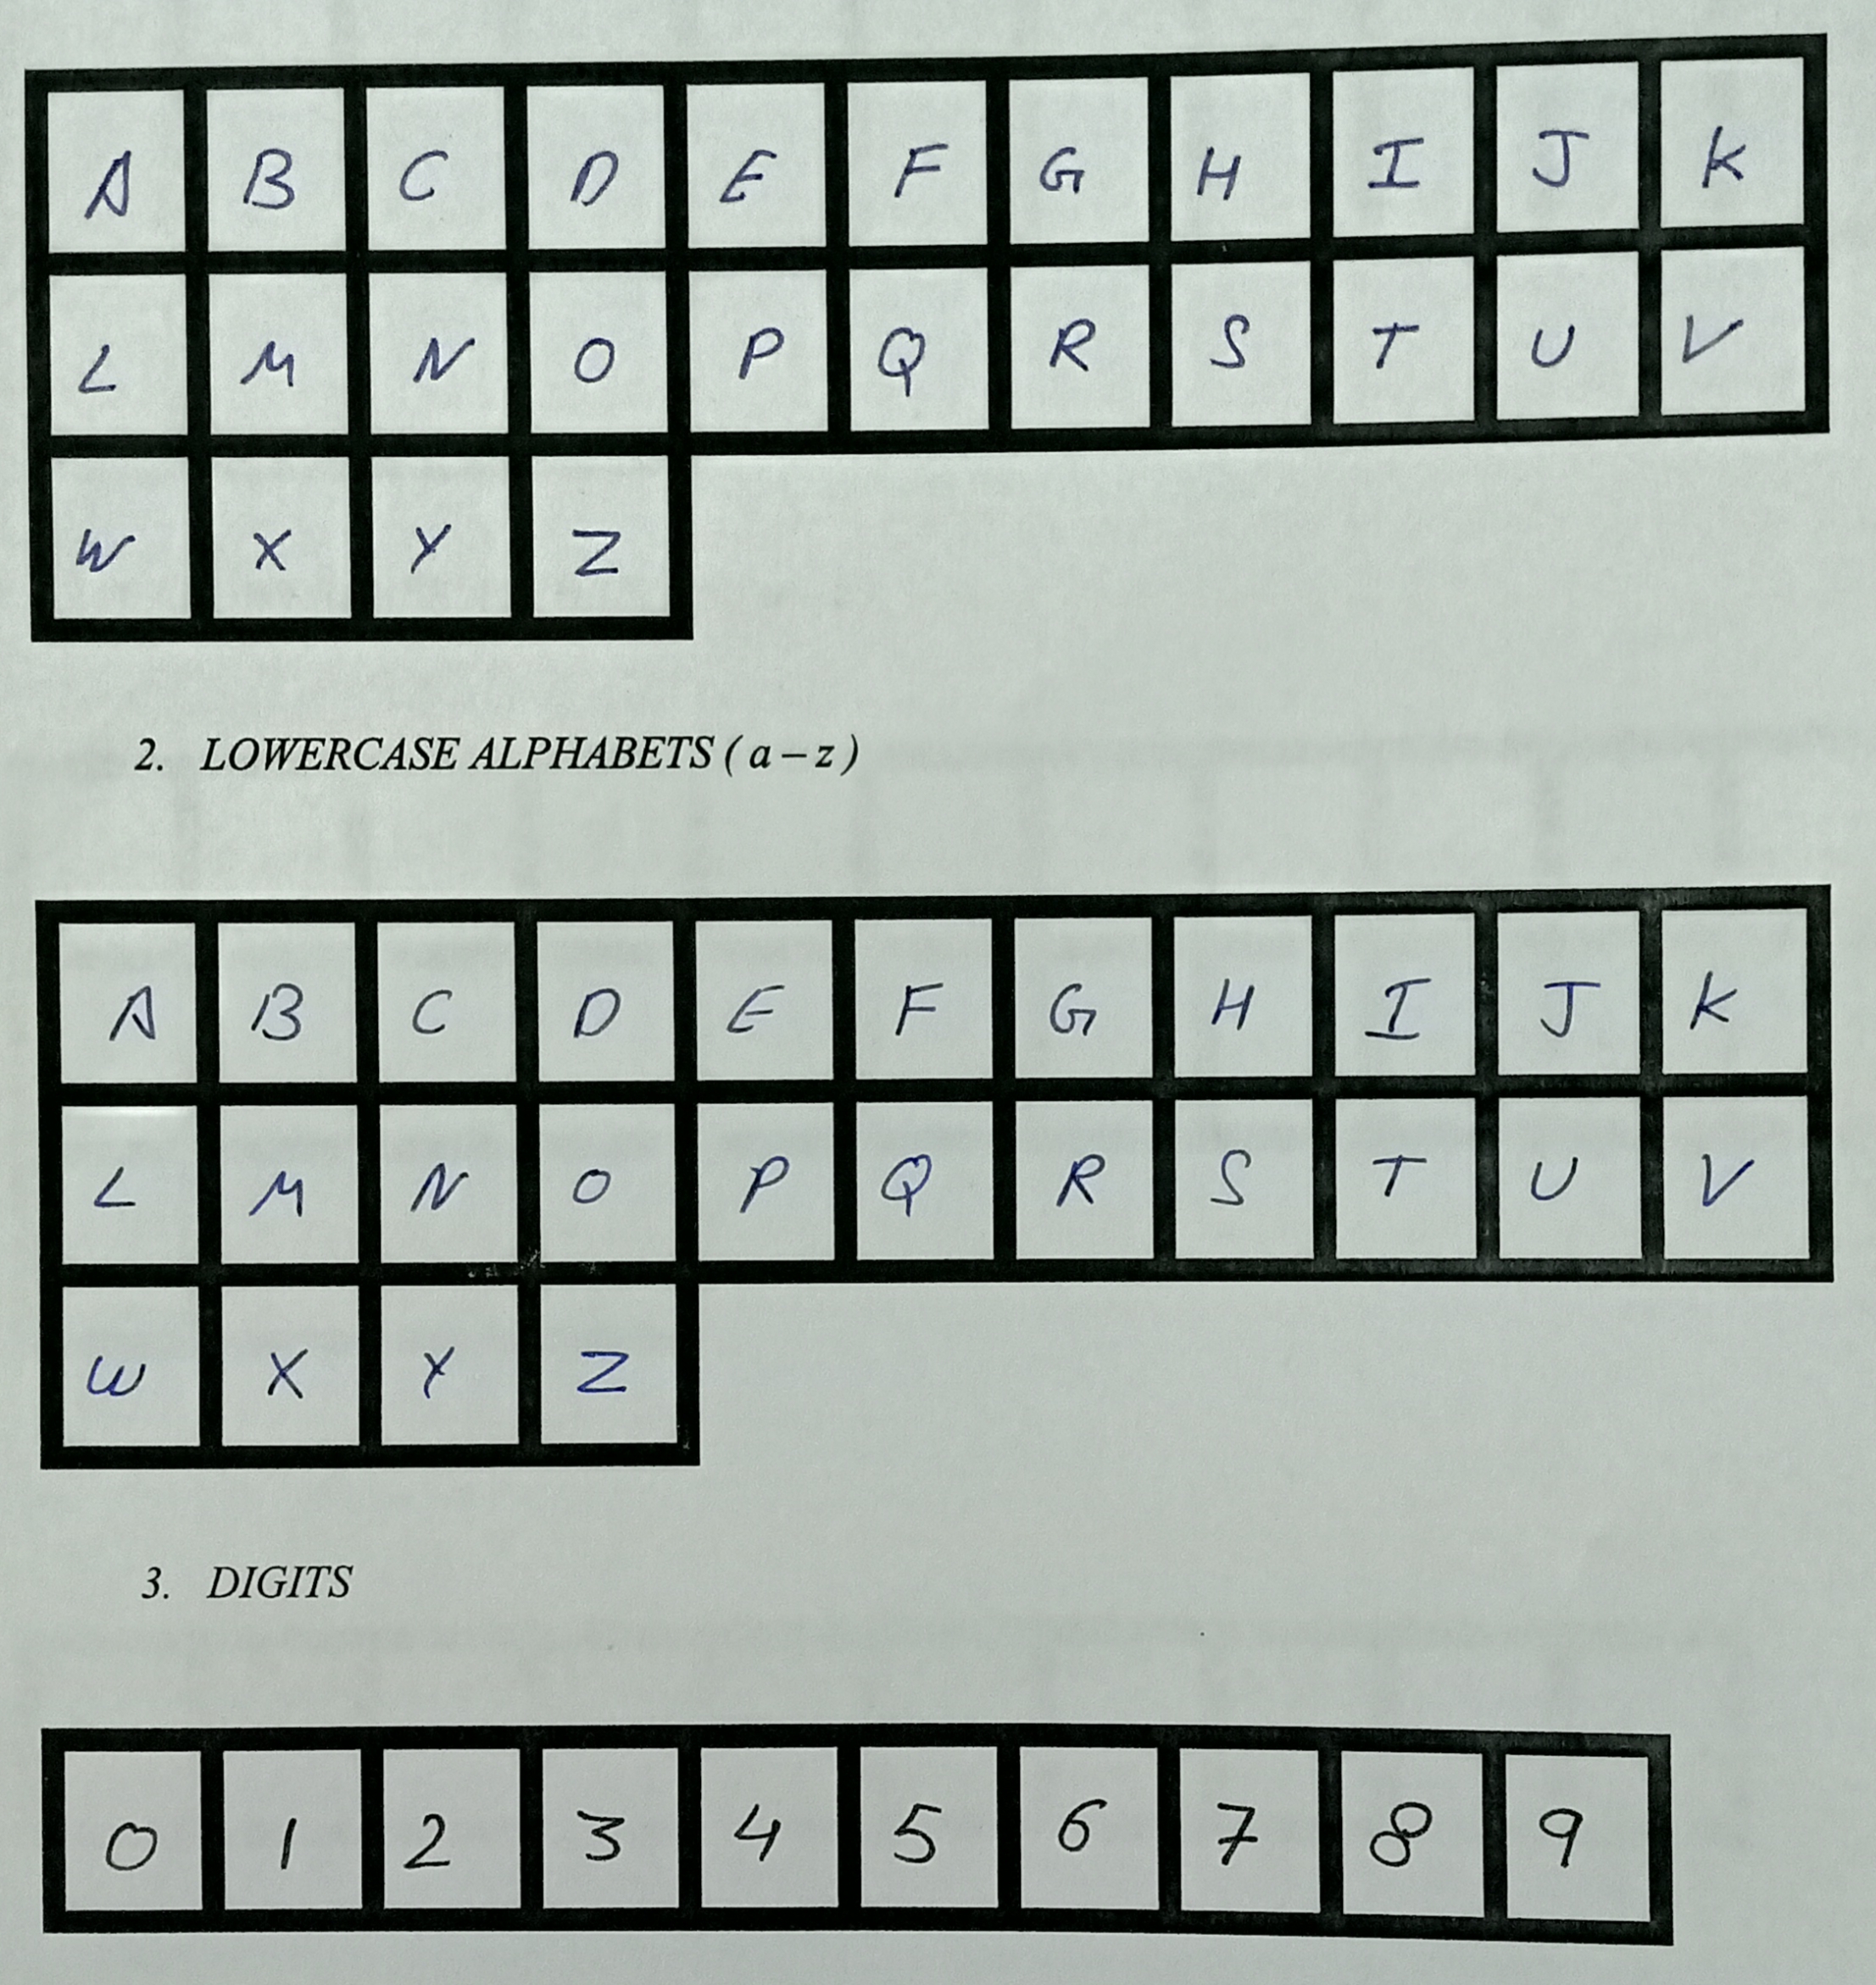 A B C D E F G H I J K
L M N O P Q R S T U V
W X Y Z
2. LOWERCASE ALPHABETS ( a – z )
A B C D E F G H I J K
L M N O P Q R S T U V
W X Y Z
3. DIGITS
0 1 2 3 4 5 6 7 8 9